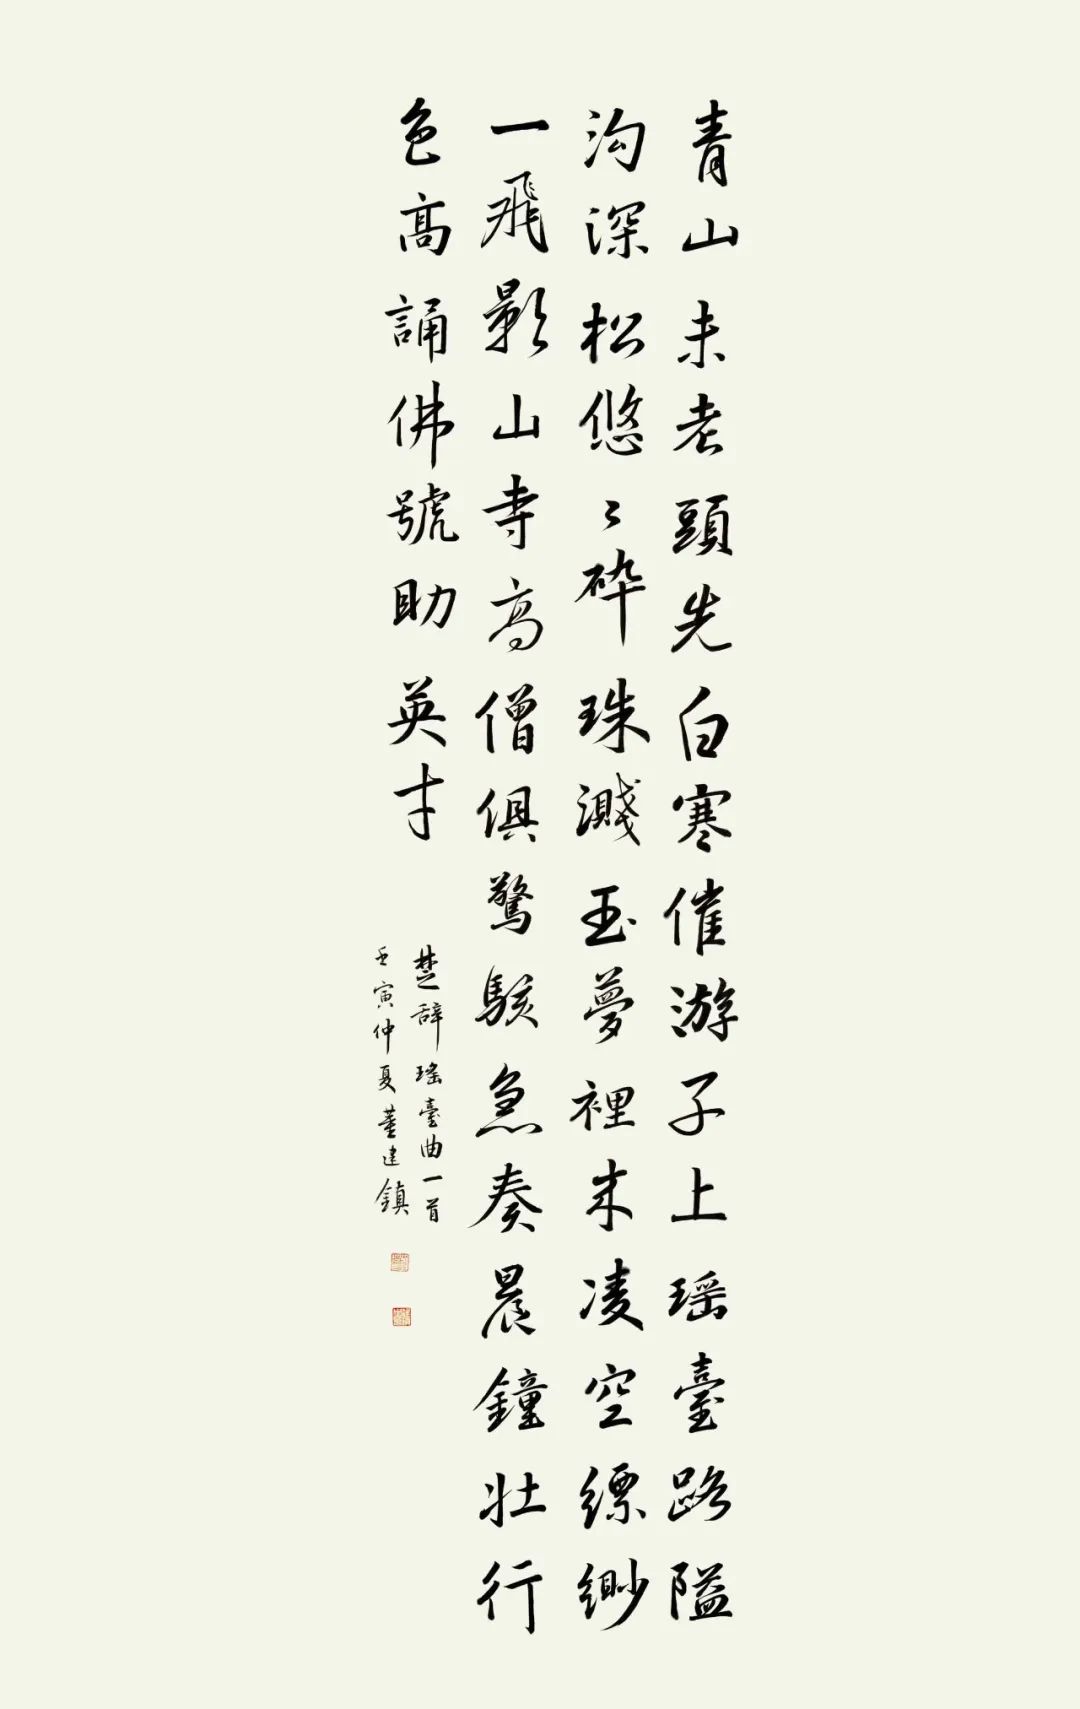 青山未老頭先白寒催游子上瑶臺路隘
沟深松悠々碎珠濺玉夢裡未凌空縹緲
一飛影山寺高僧俱驚駭急奏晨鐘壮行
色高誦佛號助英才
楚辭瑶臺曲一首
壬寅仲夏董建鎮